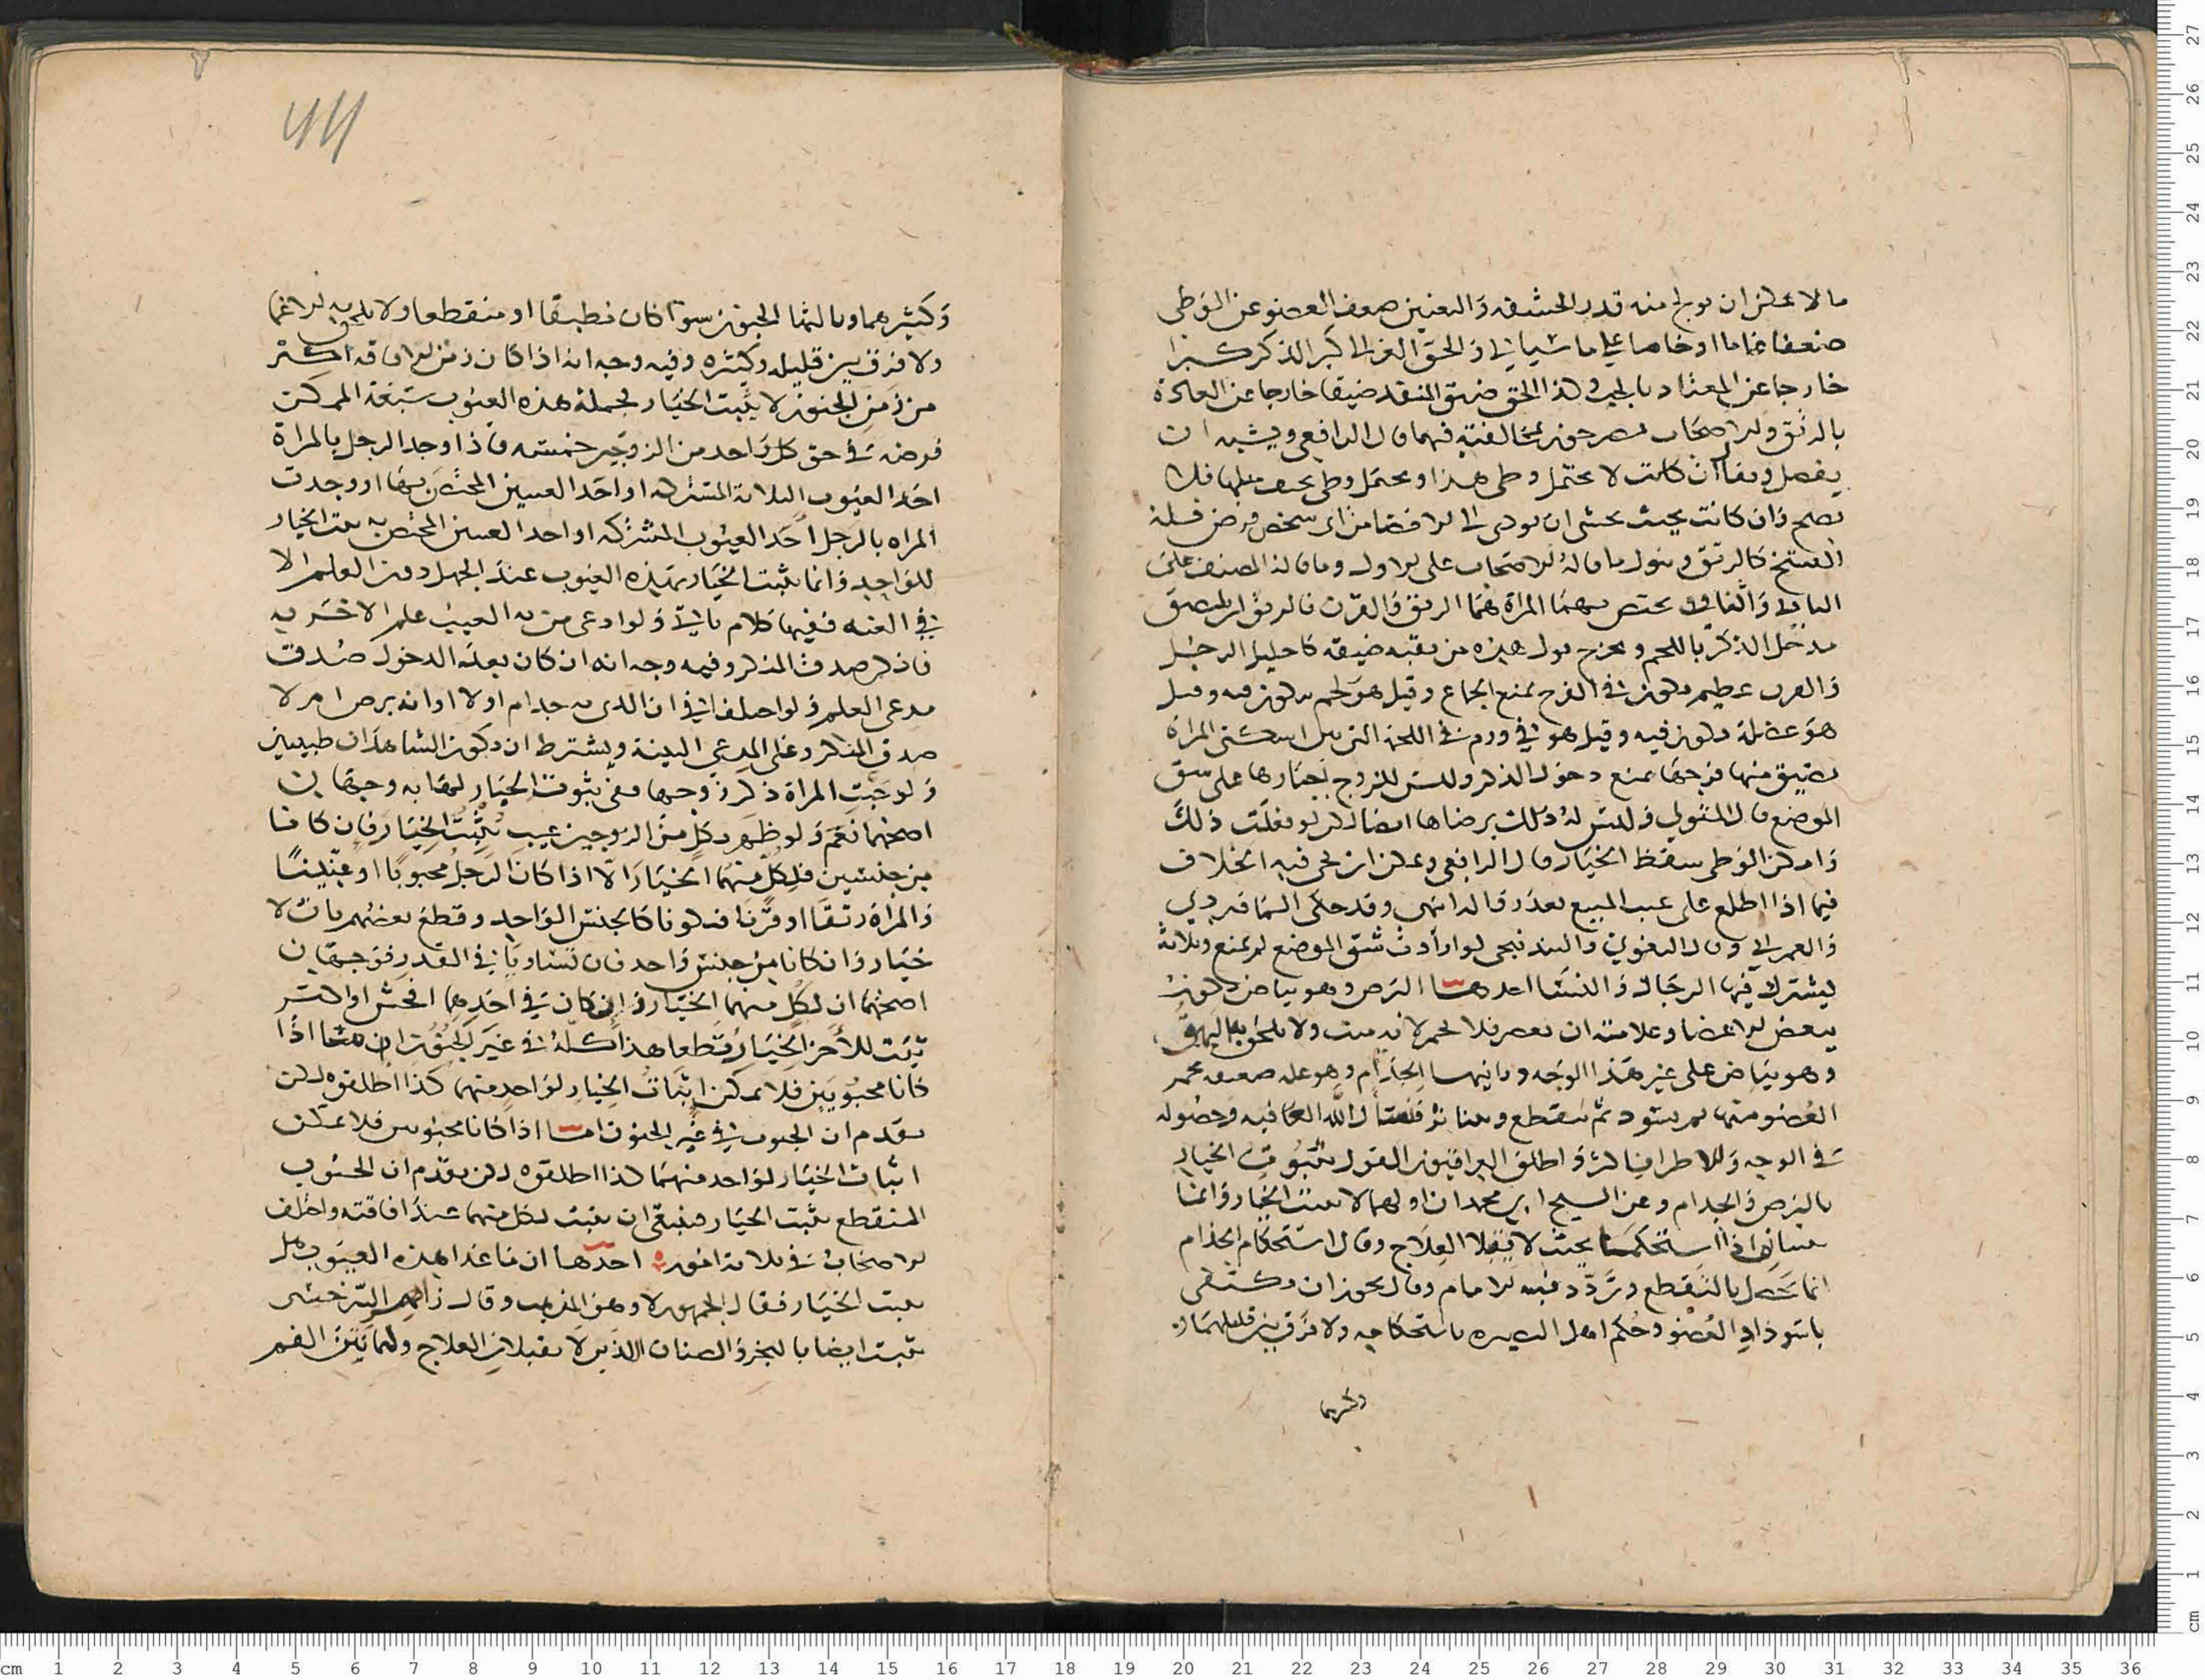 ما لا يمكن ان يولج منه قدر الحشفه والتعنين ضعف العضو عن الوطى
ضعفا عاما او خاصا على ما سياتى والحق الغزالى كبر الذكر كبرا
خارجا عن المعتاد بالجب وكذا الحق ضيق المنفذ ضيقا خارجا عن العادة
بالرتق والاصحاب مصرحون بمخالفته فيهما قال الرافعى ويشبه ان
يفصل ويقال ان كانت لا تحتمل وطى هذا وتحتمل وطى نحيف مثلها فلا
فسخ وان كانت بحيث يخشى ان يودى الى الافضا من اى شخص فرض فيله
الفسخ كالرتق وينزل ما قاله الاصحاب على الاول وما قاله المصنف على
الثانى واثنان يختص بهما المراة هما الرتق والقرن فالرتق ان يلتصق
مدخل الذكر باللحم ويخرج بول هذه من ثقبه ضيقه كاحليل الرجل
والقرن عظيم يكون فى الفرج يمنع الجماع وقيل هو لحم يكون فيه وقيل
هو عضلة يكون فيه وقيل هو فى ورم فى اللحمة التى بين اسكتى المراة
يضيق منها فرجها يمنع دخول الذكر وليس للزوج اجبارها على شق
الموضع قال المتولى وليس له ذلك برضاها ايضا لكن لو فعلت ذلك
وامكن الوطى سقط الخيار قال الرافعى ويمكن ان يجى فيه الخلاف
فيما اذا اطلع على عيب المبيع بعد زواله انتهى وقد حكى الماوردى
والعمرانى وقال البغوى والبندنيجى لو ارادت شق الموضع لم تمنع وثلاثة
يشترك فيها الرجال والنسا احدها البرص وهو بياض يكون
ببعض الاعضا وعلامته ان يعصر فلا يحمر لانه ميت ولا يلحق به البهق
وهو بياض على غير هذا الوجه وثانيها الجذام وهو علة صعبه يحمر
العضو منها ثم يسود ثم يتقطع ويتناثر فنسال الله العافيه وحصوله
فى الوجه والاطراف اكثر واطلق العراقيون القول بثبوت الخيار
بالبرص والجذام وعن الشيخ ابى محمد ان اولهما لا يثبت الخيار وانما
يثبتانه اذا استحكما بحيث لا يقبلا العلاج وقال استحكام الجذام
انما يحصل بالتقطع وتردد فيه الامام وقال يجوز ان يكتفى
باسوداد العضو وحكم اهل البصيره باستحكامه ولا فرق بين قليلهما و
وكثيرهما
وكثيرهما وثالثها الجنون سوا كان مطبقا او منقطعا ولا يلحق به الاغما
ولا فرق بين قليله وكثيره وفيه وجه انه اذا كان زمن الافاقة اكثر
من زمن الجنون لا يثبت الخيار فجملة هذه العيوب سبعة الممكن
فرضه فى حق كل واحد من الزوجين خمسة فاذا وجد الرجل بالمراة
احد العيوب الثلاثة المشتركه او احد العيبين المختص بها او وجدت
المراه بالرجل احد العيوب المشتركه او احد العيبين المختص به ثبت الخيار
للواجد وانما يثبت الخيار بهذه العيوب عند الجهل دون العلم الا
فى العنه ففيها كلام ياتى ولو ادعى من به العيب علم الاخر به
فانكر صدق المنكر وفيه وجه انه ان كان بعد الدخول صدق
مدعى العلم ولو اختلفا فى ان الذى به جذام او لا او انه برص ام لا
صدق المنكر وعلى المدعى البينة ويشترط ان يكون الشاهدان طبيبين
ولو جبت المراة ذكر زوجها ففى ثبوت الخيار لها به وجهان
اصحهما نعم ولو ظهر بكل من الزوجين عيب يثبت الخيار فان كانا
من جنسين فلكل منهما الخيار الا اذا كان الرجل مجبوبا او عنينا
والمراة رتقا او قرنا فيكونا كالجنس الواحد وقطع بعضهم بان لا
خيار وان كانا من جنس واحد فان تساويا فى القدر فوجهان
اصحهما ان لكل منهما الخيار وان كان فى احدهما افحش او اكثر
ثبت للاخر الخيار قطعا هذا كله فى غير الجنون اما اذا
كانا مجنونين فلا يمكن اثبات الخيار لواحد منهما كذا اطلقوه لكن
تقدم ان الجنون فى غير الجنون اما اذا كانا مجنونين فلا يمكن
اثبات الخيار لواحد منهما كذا اطلقوه لكن تقدم ان الجنون
المنقطع يثبت الخيار فينبغى ان يثبت لكل منهما عند افاقته واختلف
الاصحاب فى ثلاثة امور احدها ان ما عدا هذه العيوب هل
يثبت الخيار فقال الجمهور لا وهو المذهب وقال زاهر السرخسى
يثبت ايضا بالبخر والصنان اللذين لا يقبلان العلاج ولهما نتن الفم